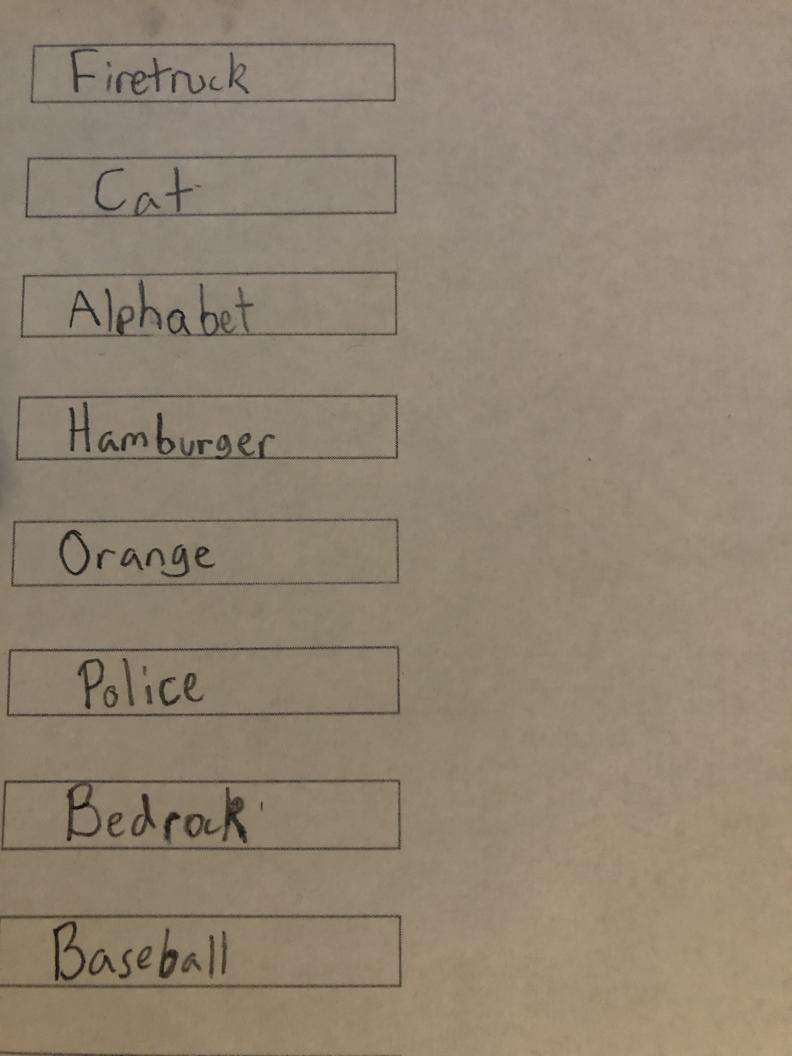 Firetruck
Cat
Alphabet
Hamburger
Orange
Police
Bedrock
Baseball